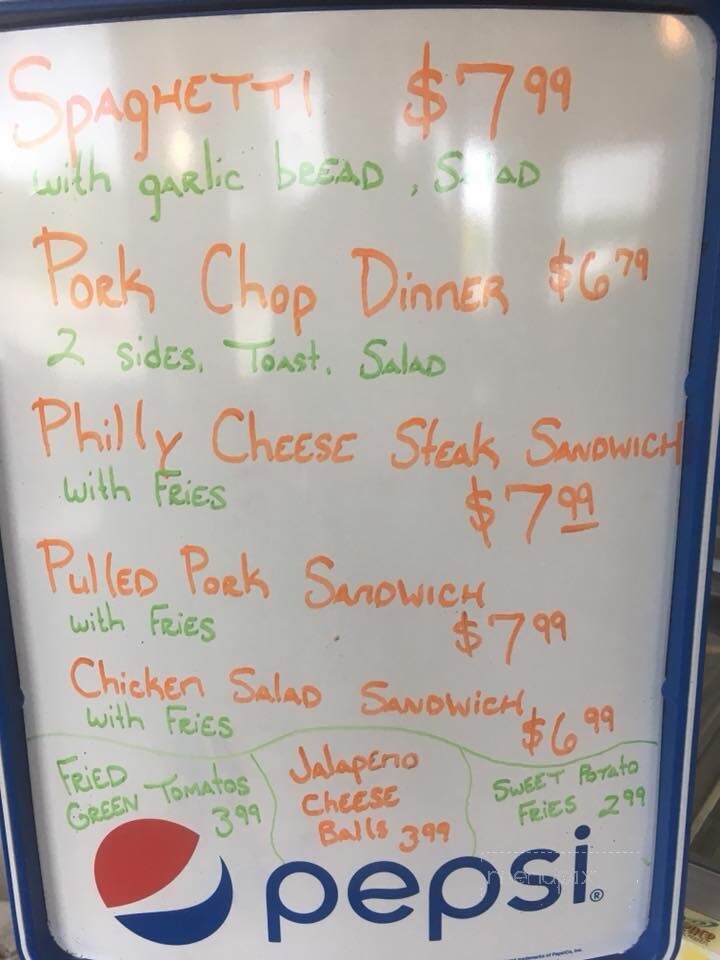 SPAGHETTI $7.99
with garlic bread, Salad
Pork Chop Dinner $6.79
2 sides, Toast, Salad
Philly CHEESE Steak SANDWICH
with FRIES $7.99
Pulled Pork SANDWICH
with FRIES $7.99
Chicken SALAD SANDWICH
with FRIES $6.99
FRIED GREEN TOMATOS 3.99
Jalapeno CHEESE Balls 3.99
SWEET POTATO FRIES 2.99
pepsi®
menupix